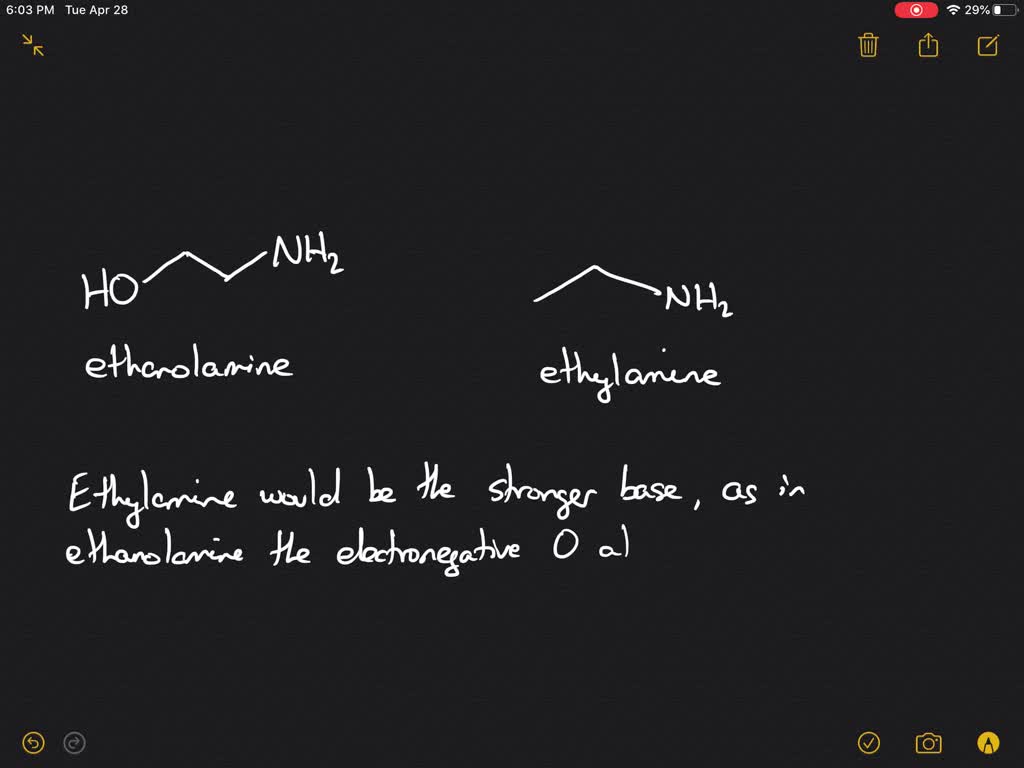 6:03 PM Tue Apr 28 29%
HO NH2
NH2
ethanolamine
ethylamine
Ethylamine would be the stronger base, as in
ethanolamine the electronegative O al